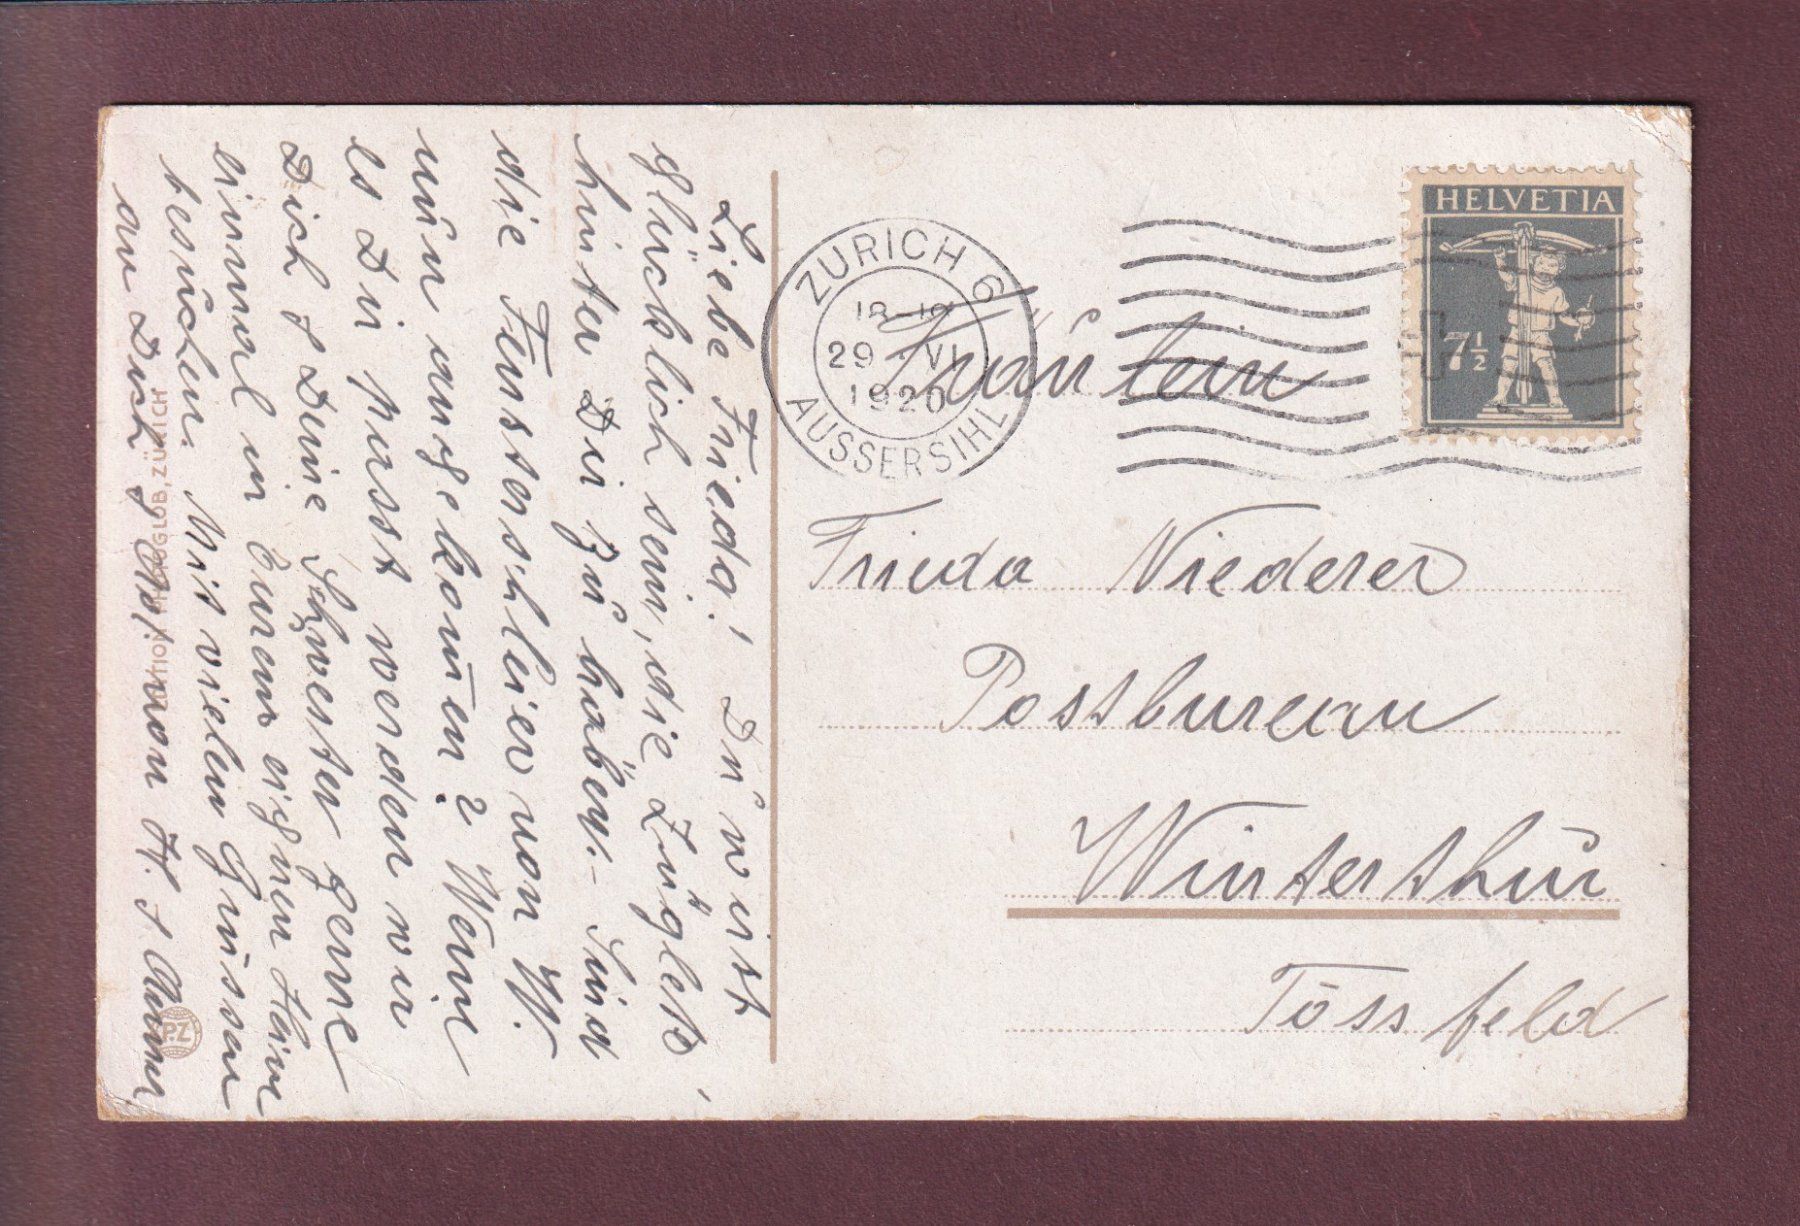 Liebe Frieda! Du wirst
glücklich sein, die Züglete
hinter Dir zu haben. - Sind
die Fensterschleier von W.
nun angekommen? Wenn
es Dir passt werden wir
Dich & Deine Schwester gerne
einmal in Eurem eignen Heim
besuchen. Mit vielen Grüssen
an Dich, von H. &
ZÜRICH 6
18-19
29. VI.
1920
AUSSERSIHL
HELVETIA
7½
Fräulein
Frieda Niederer
Postbureau
Winterthur
Töss feld
ZÜRICH
P.Z